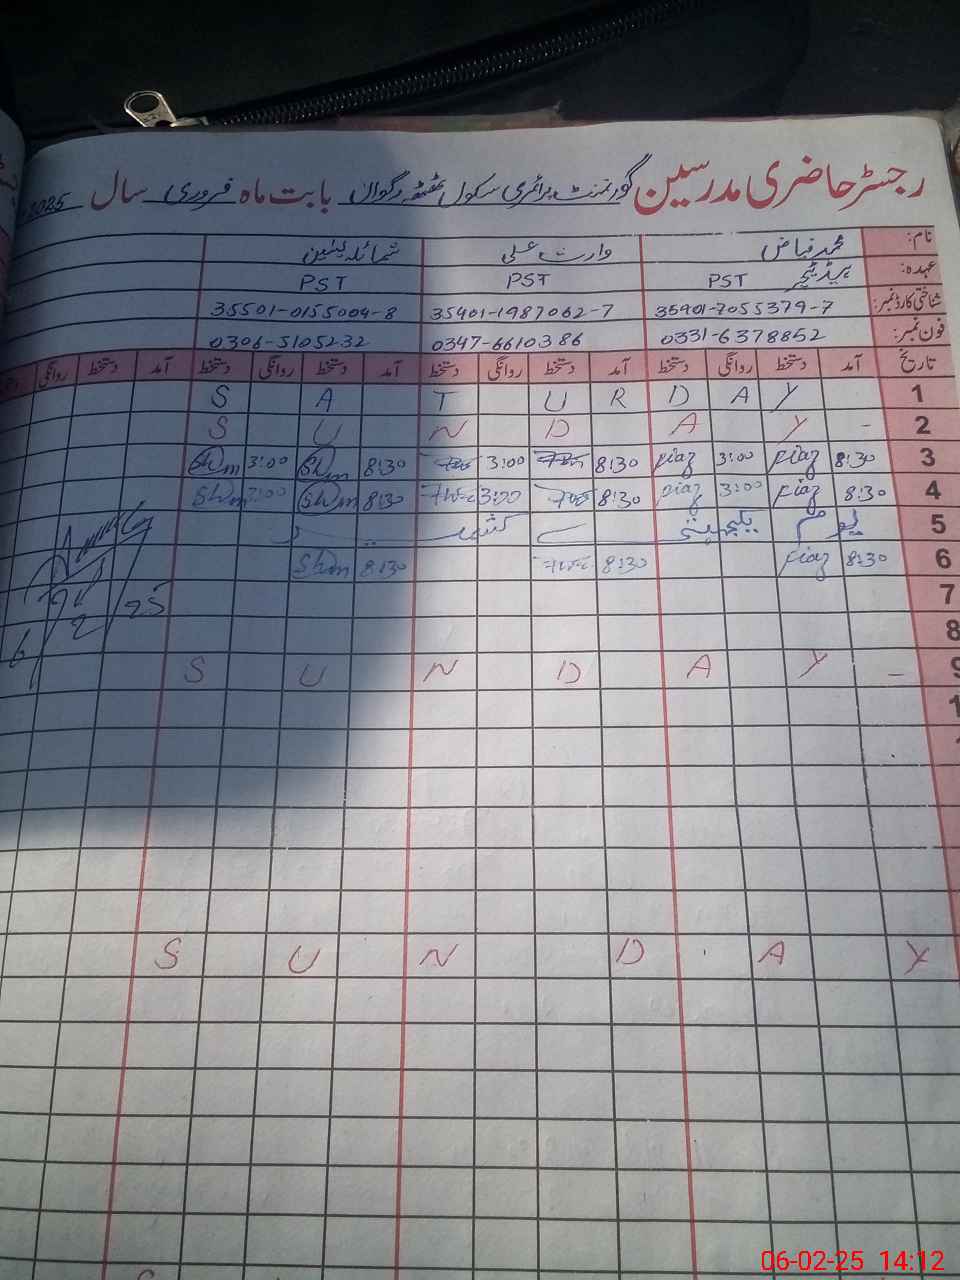 رجسٹر حاضری مدرسین گورنمنٹ پرائمری سکول ٹھٹھہ رگوال بابت ماہ فروری سال 2025
نام: محمد فیاض وارث علی شمائلہ یٰسین
عہدہ: ہیڈ ٹیچر PST PST PST
شناختی کارڈ نمبر: 35401-7055379-7 35401-1987062-7 35501-0155004-8
فون نمبر: 0331-6378852 0347-6610386 0306-5105232
تاریخ آمد دستخط روانگی دستخط آمد دستخط روانگی دستخط آمد دستخط روانگی دستخط آمد دستخط روانگی
1 S A T U R D A Y
2 S U N D A Y -
3 8:30 fiaz 3:00 fiaz 8:30 3:00 8:30 Shm 3:00 Shm
4 8:30 fiaz 3:00 fiaz 8:30 3:00 8:30 Shm 3:00 Shm
5 یوم یکجہتی کشمیر
6 8:30 fiaz 8:30 8:30 Shm
7
8
9 S U N D A Y -
1
S U N D A Y
6/2/25
06-02-25 14:12